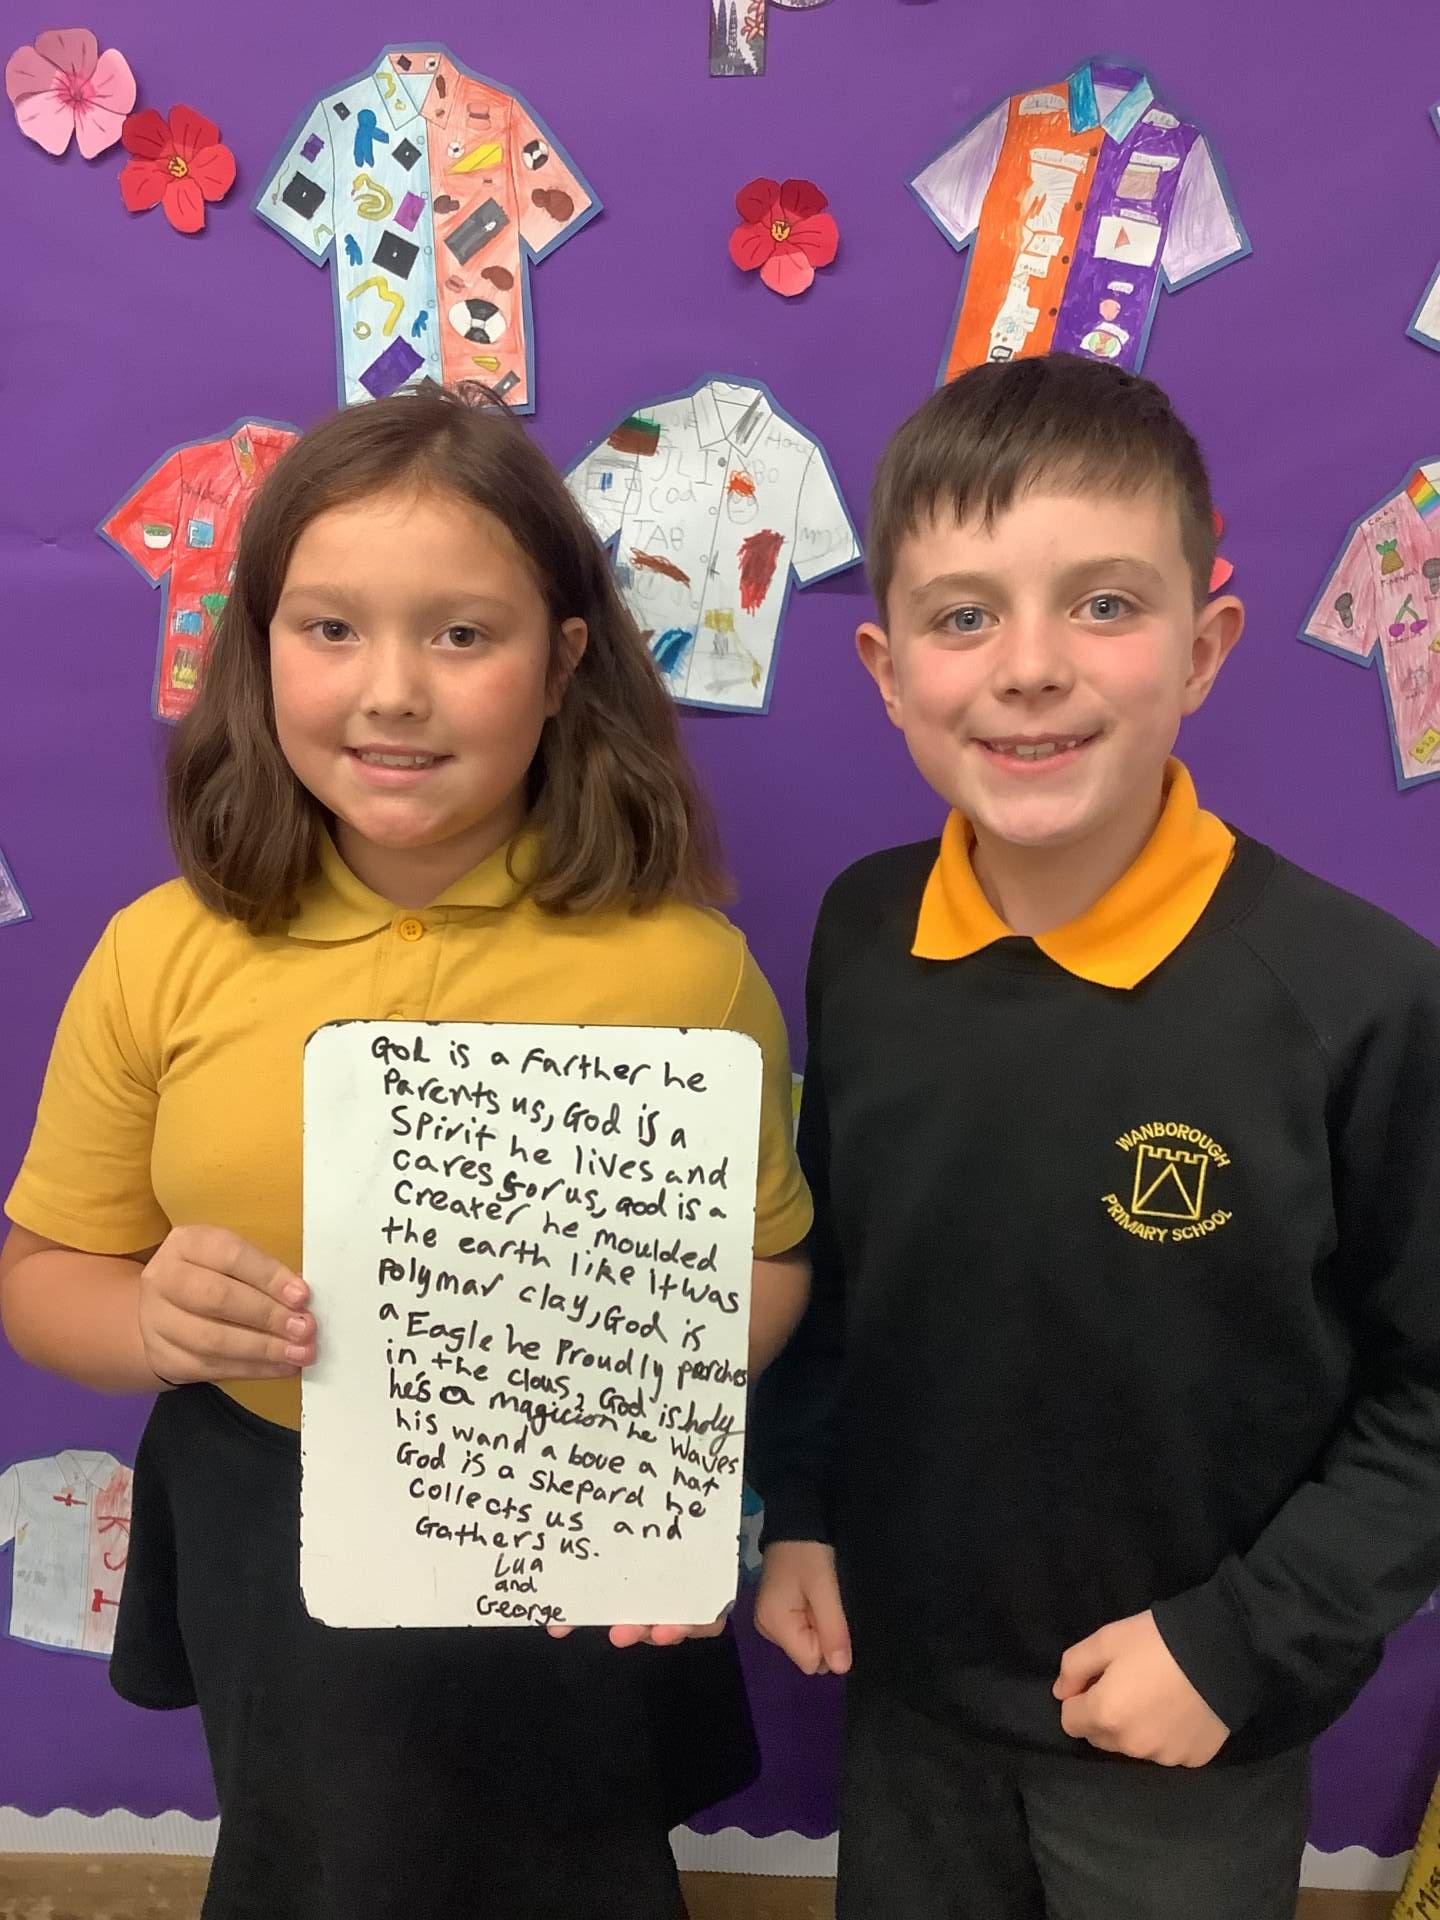 God is a Farther he
Parents us, God is a
Spirit he lives and
cares for us, God is a
Creater he moulded
the earth like it was
polymar clay, God is
a Eagle he Proudly perches
in the clous, God is holy
he's a magicion he waves
his wand a bove a hat
God is a Shepard he
Collects us and
Gathers us.
Lua
and
George
WANBOROUGH
PRIMARY SCHOOL
TAB
Cod